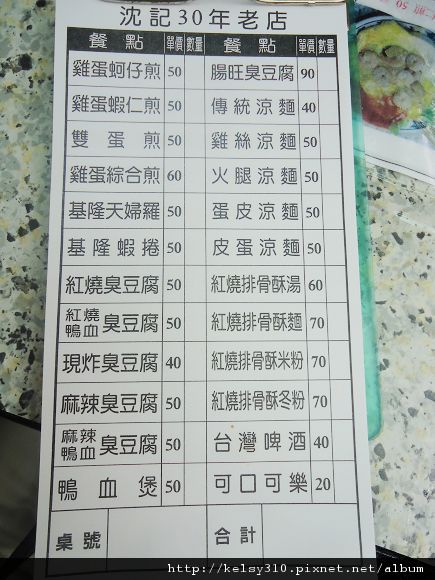 沈記30年老店
餐點 單價 數量 餐點 單價 數量
雞蛋蚵仔煎 50 腸旺臭豆腐 90
雞蛋蝦仁煎 50 傳統涼麵 40
雙蛋煎 50 雞絲涼麵 50
雞蛋綜合煎 60 火腿涼麵 50
基隆天婦羅 50 蛋皮涼麵 50
基隆蝦捲 50 皮蛋涼麵 50
紅燒臭豆腐 50 紅燒排骨酥湯 60
紅燒鴨血臭豆腐 50 紅燒排骨酥麵 70
現炸臭豆腐 40 紅燒排骨酥米粉 70
麻辣臭豆腐 50 紅燒排骨酥冬粉 70
麻辣鴨血臭豆腐 50 台灣啤酒 40
鴨血煲 50 可口可樂 20
桌號 合計
http://kelsy310.pixnet.net/album